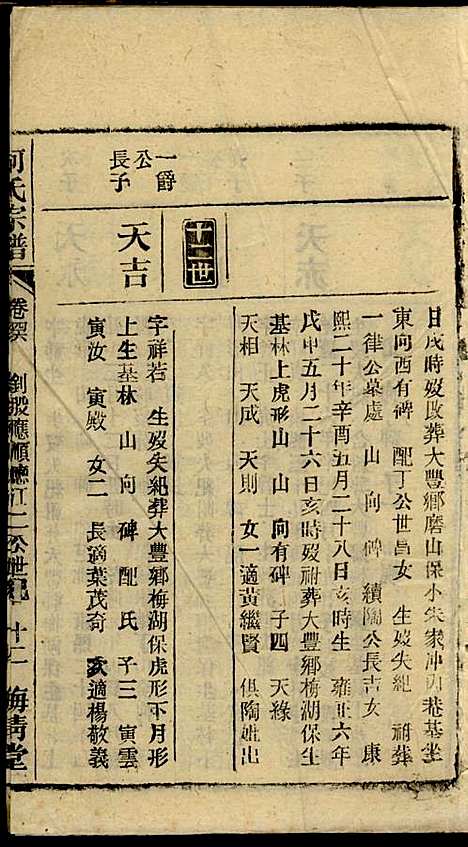 日戌時歿改葬大豐鄉磨山保小朱家冲內菴基坐
東向西有碑 配丁公世昌女 生歿失紀 祔葬
一律公墓處 山 向 碑 續陶公長吉女 康
熙二十年辛酉五月二十八日亥時生 雍正六年
戊申五月二十六日亥時歿祔葬大豐鄉梅湖保生
基林上虎形山 山 向有碑 子四 天緣
天相 天成 天則 女一適黃繼賢 俱陶姓出
十二世
一爵
公
長子
天吉
字祥若 生歿失紀葬大豐鄉梅湖保虎形下月形
上生基林 山 向 碑 配 氏 子三 寅雲
寅汝 寅殿 女二 長適葉茂奇 次適楊敬義
何氏宗譜 卷 劉 應順 江二公世紀 十二 梅靖堂